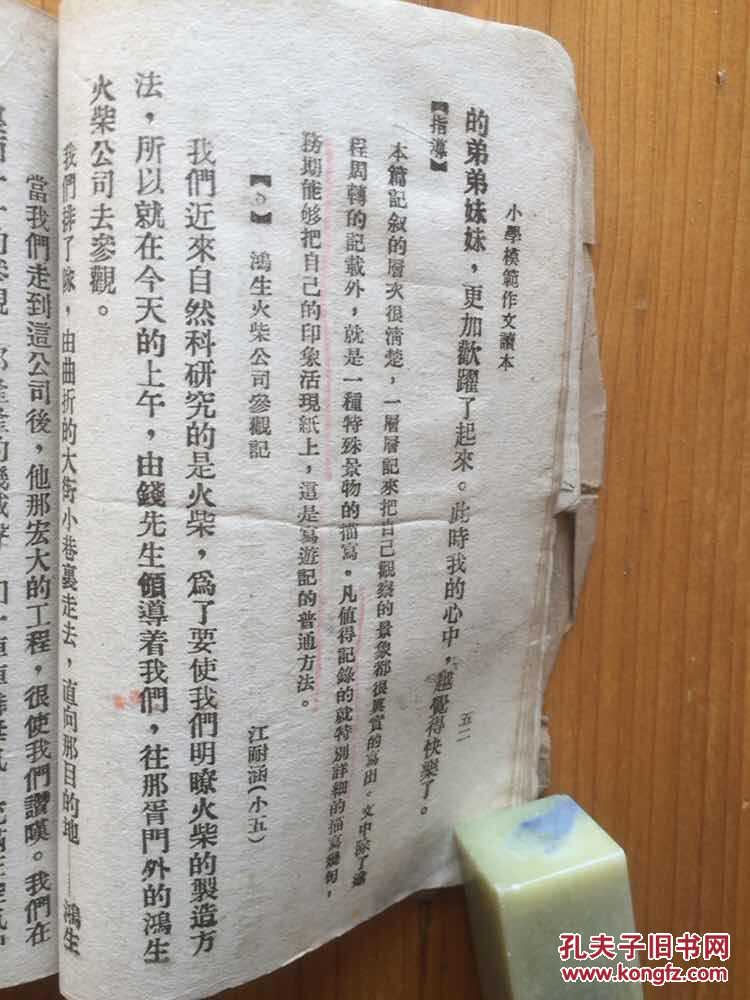 小學模範作文讀本
五二
的弟弟妹妹，更加歡躍了起來。此時我的心中，越覺得快樂了。
【指導】
本篇記敍的層次很清楚，一層層記來把自己觀察的景象都很真實的寫出。文中除了遊
程周轉的記載外，就是一種特殊景物的描寫。凡值得記錄的就特別詳細的描寫幾句，
務期能够把自己的印象活現紙上，這是寫遊記的普通方法。
鴻生火柴公司參觀記
江耐涵（小五）
我們近來自然科研究的是火柴，爲了要使我們明瞭火柴的製造方
法，所以就在今天的上午，由錢先生領導着我們，往那胥門外的鴻生
火柴公司去參觀。
我們排了隊，由曲折的大街小巷裏走去，直向那目的地——鴻生
當我們走到這公司後，他那宏大的工程，很使我們讚嘆。我們在
孔夫子旧书网
www.kongfz.com